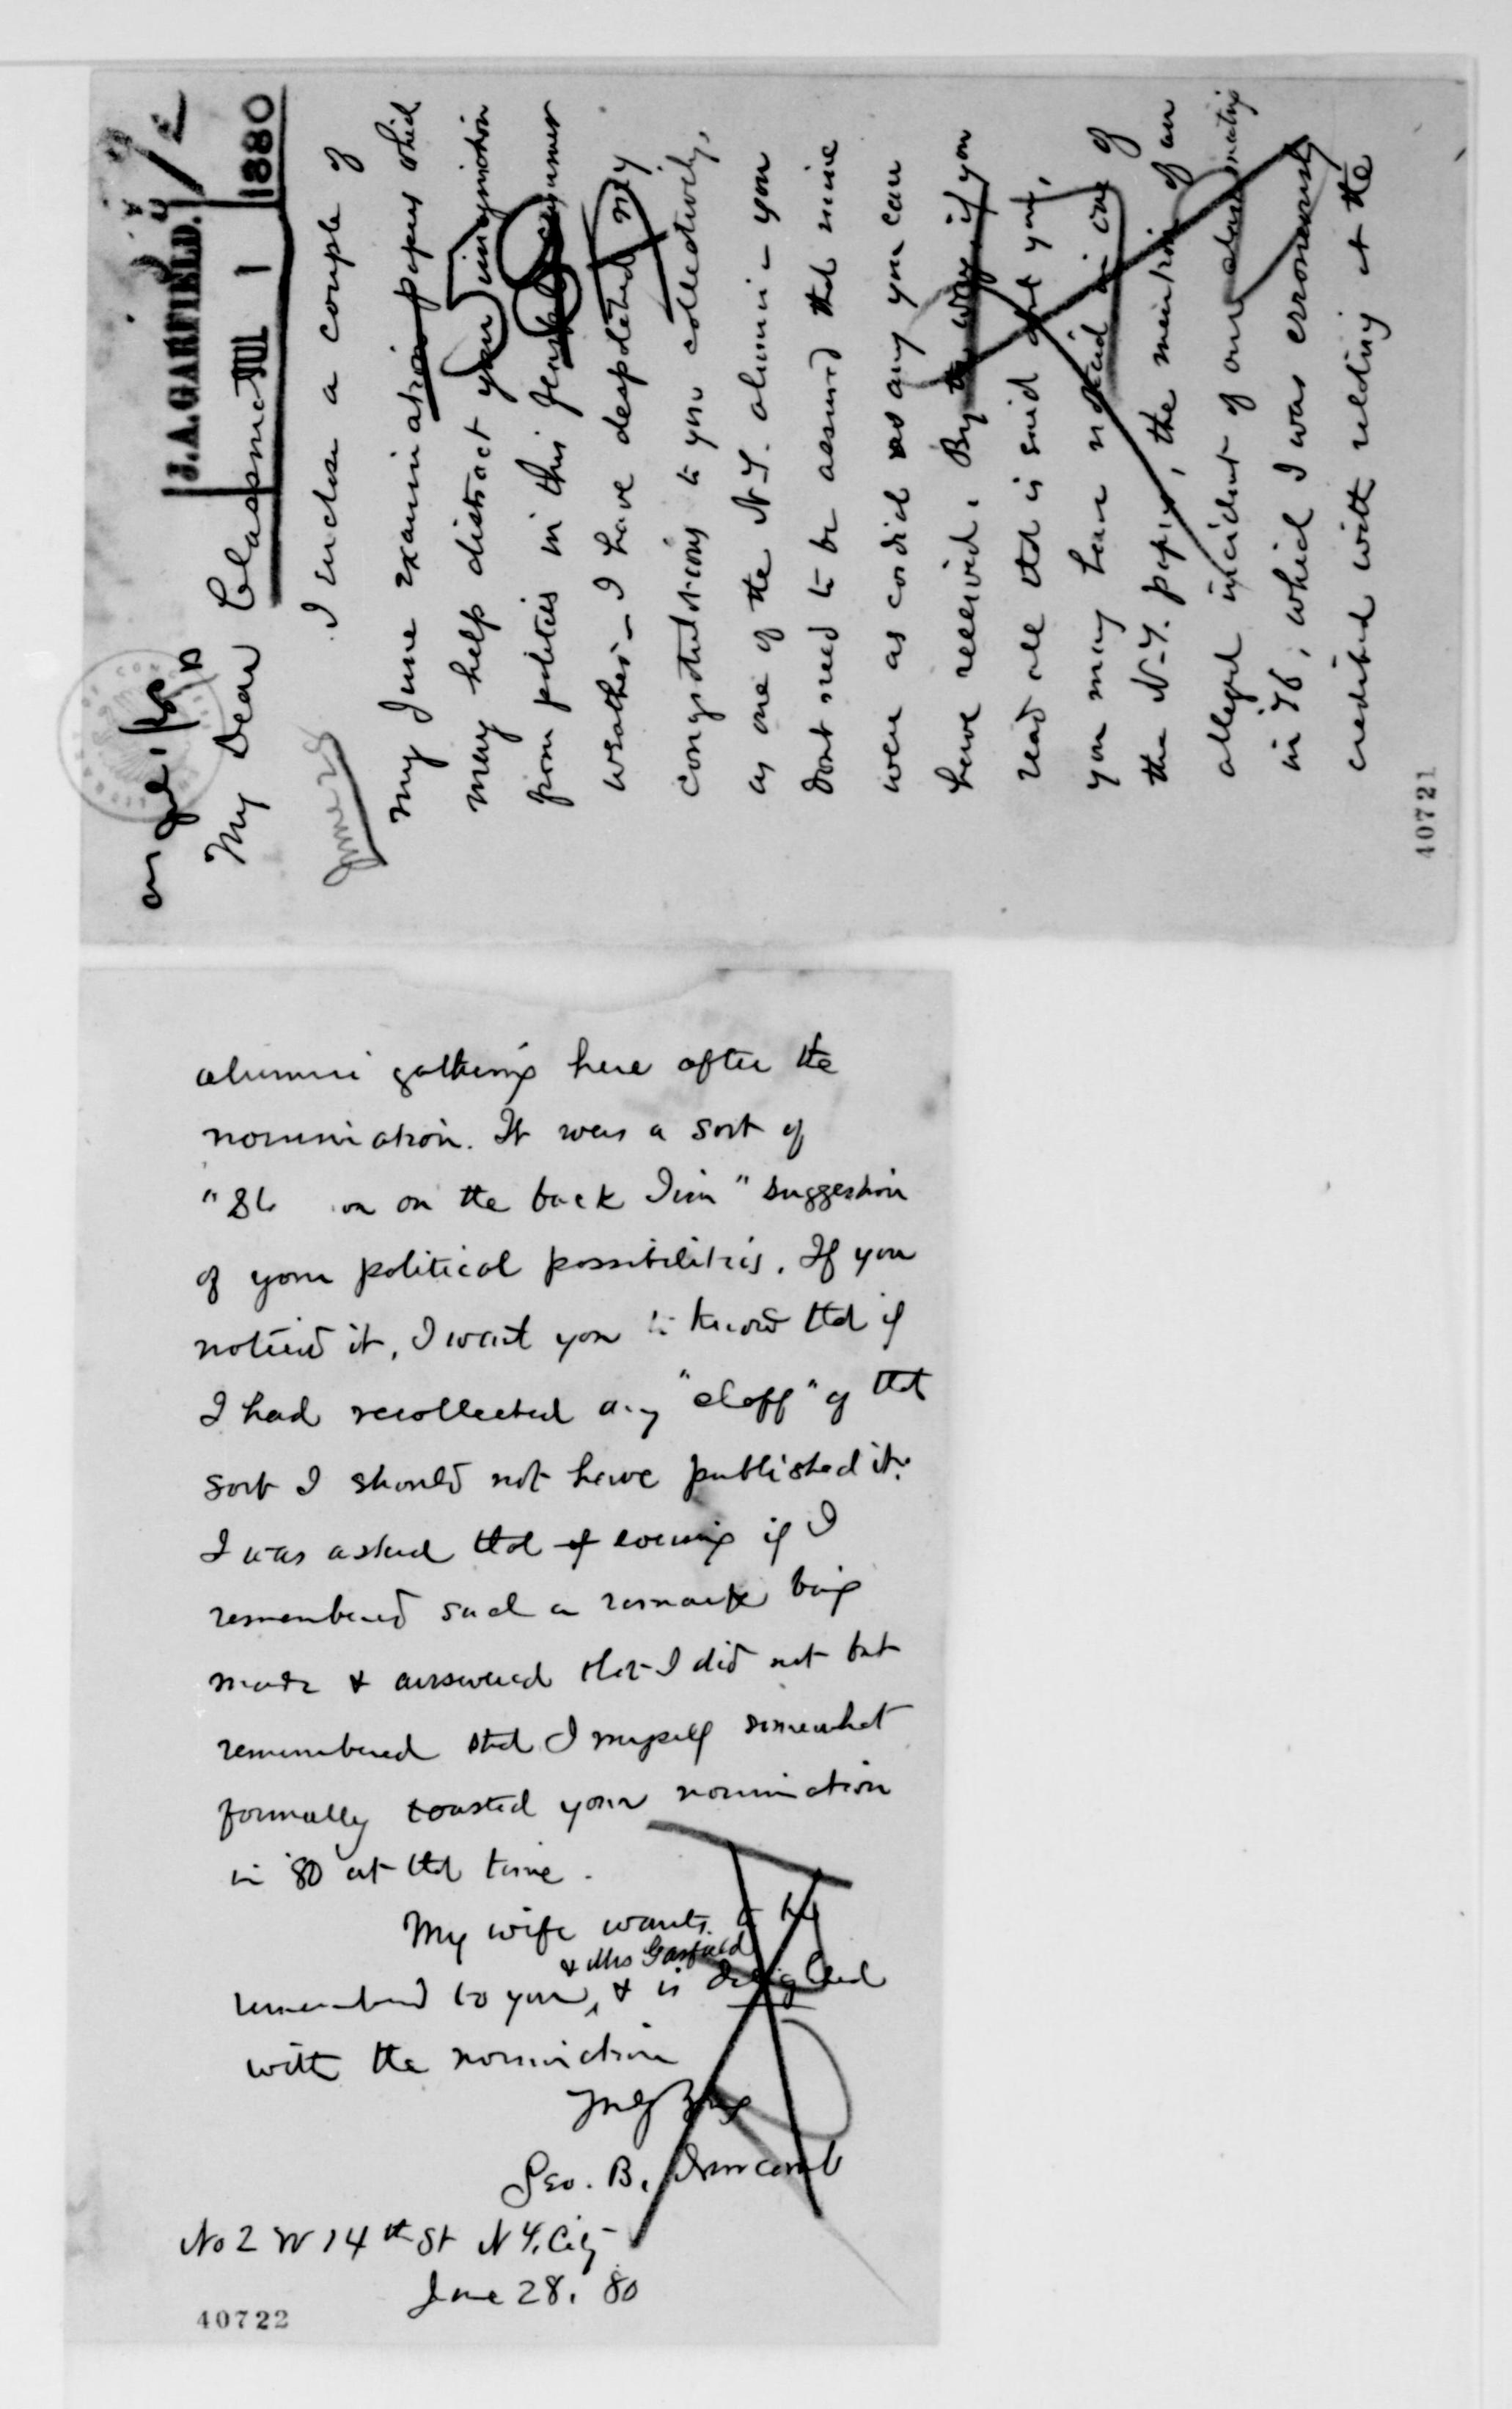 J. A. GARFIELD.
JUL 1 1880
My Dear Classmate
June 28
I enclose a couple of
my June examination papers which
may help distract your imagination
from politics in this summer
weather – I have despatched my
congratulations to you collectively,
as one of the N.Y. alumni – you
dont need to be assured that mine
were as cordial as any you can
have received. By the way, if you
read all that is said abt you,
you may have noticed in one of
the N.Y. papers, the mention of an
alleged incident of our class meeting
in '76, which I was erroneously
credited with relating at the
40721
alumni gathering here after the
nomination. It was a sort of
" on on the back Jim" suggestion
of your political possibilities. If you
noticed it, I want you to know that if
I had recollected any "chaff" of that
sort I should not have published it.
I was asked that evening if I
remembered such a remark being
made & answered that I did not but
remembered that I myself somewhat
formally toasted your nomination
in '80 at that time.
My wife wants to be
& Mrs Garfield
remembered to you, & is delighted
with the nomination
Geo. B.
No 2 W 14th St N.Y. City
June 28. 80
40722